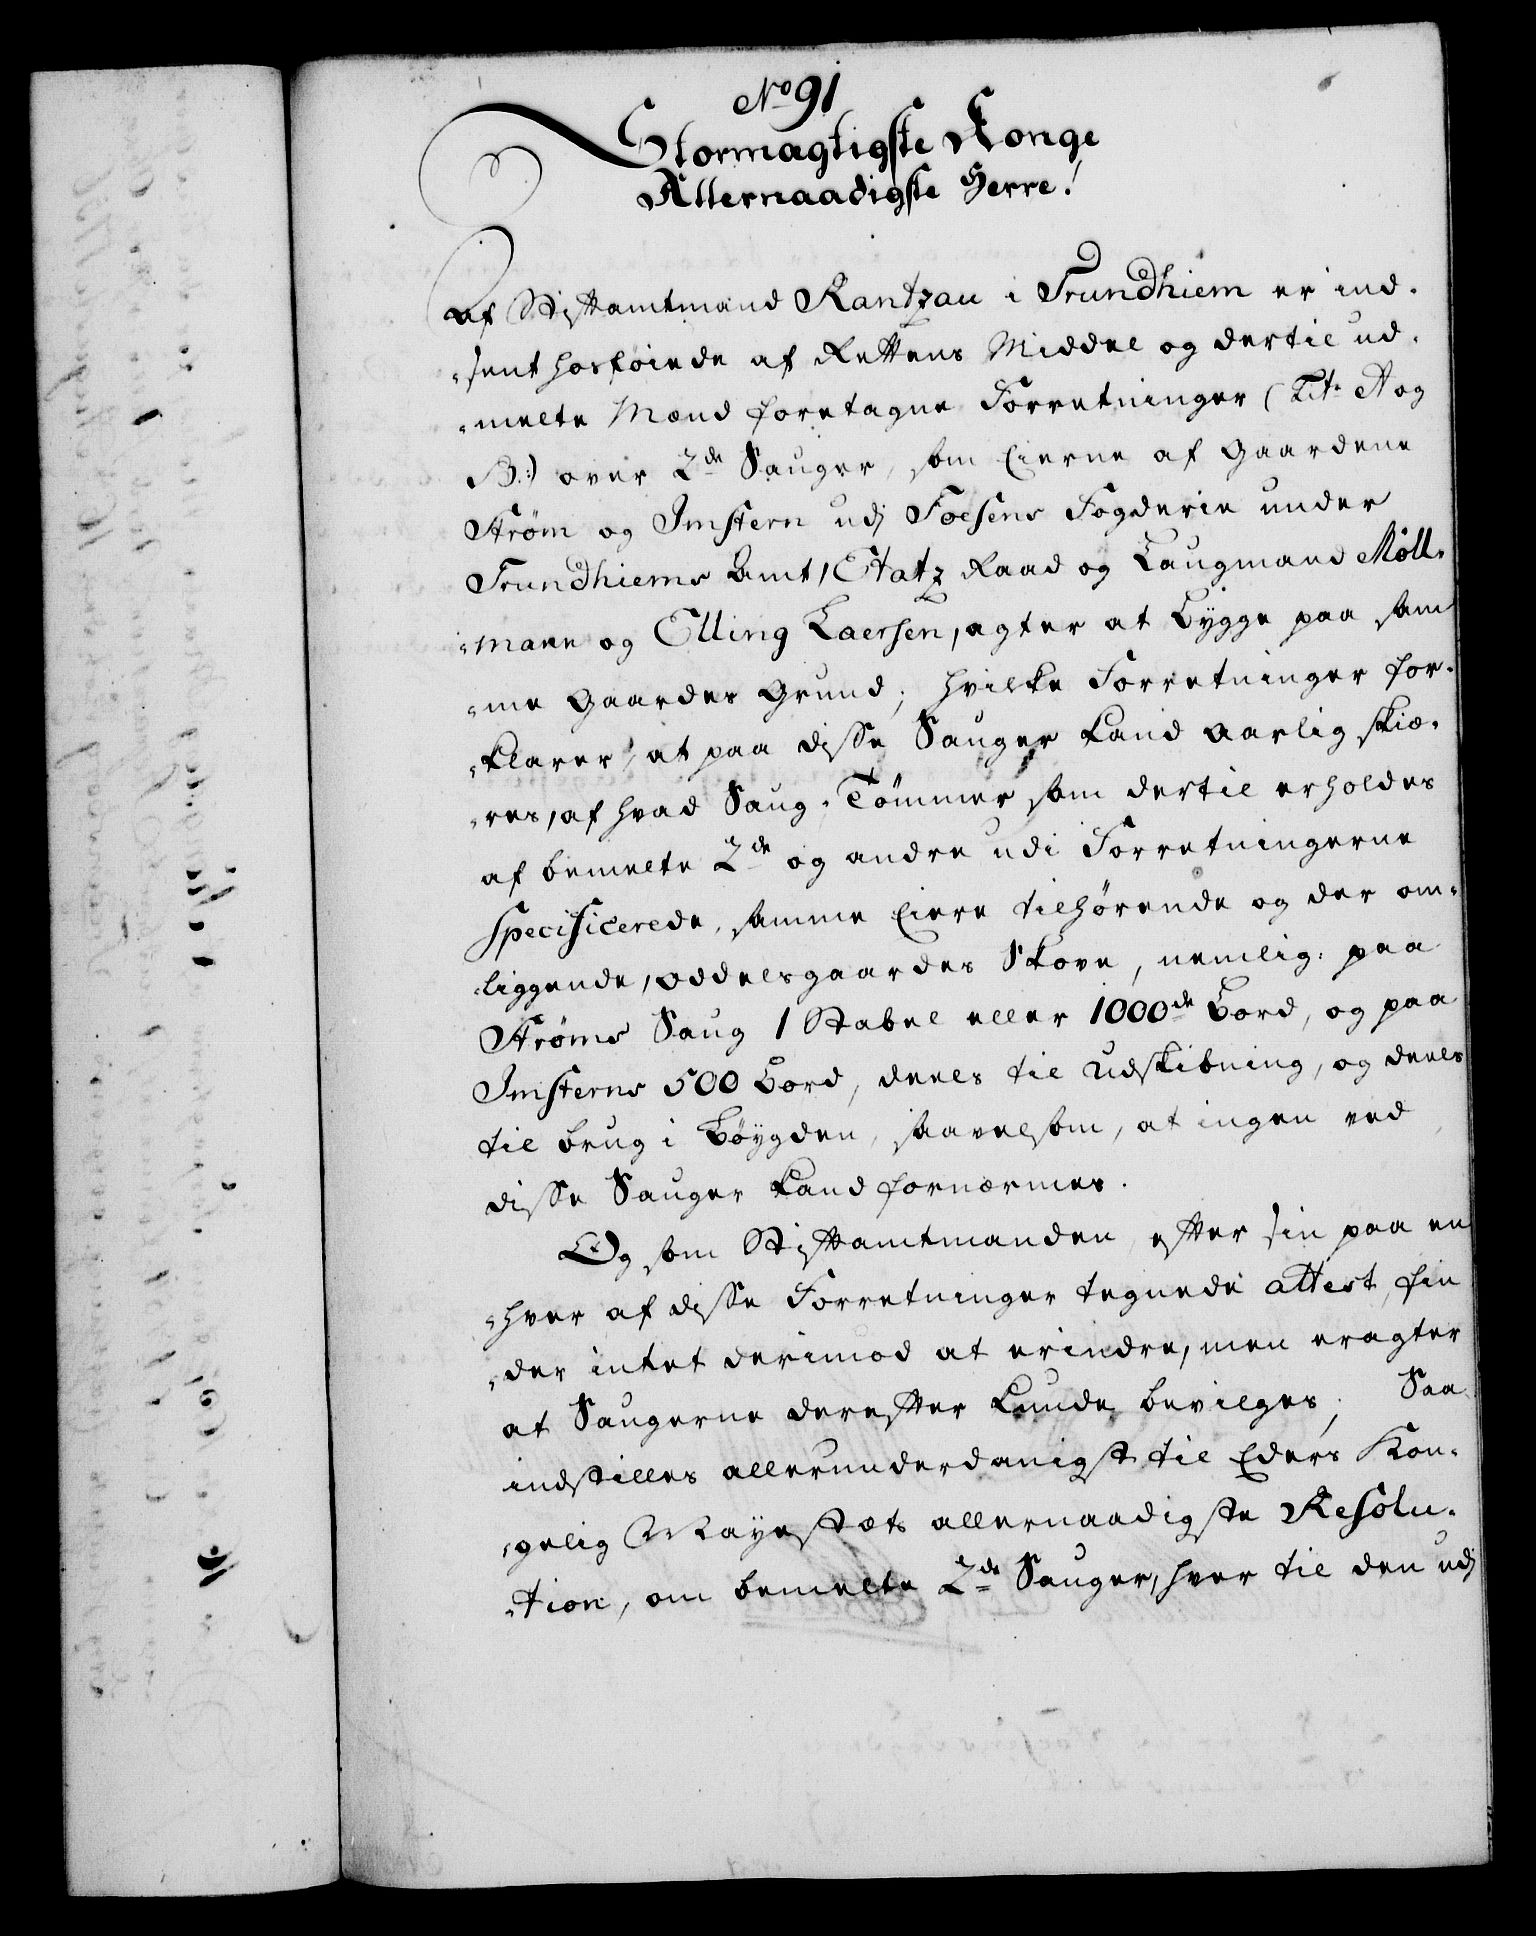 No 91
Stormagtigste Konge
Allernaadigste Herre!
Af Stiftamtmand Rantzau i Trundhiem er ind-
-sent hosføiede af Rettens Middel og dertil ud-
-melte Mænd foretagne Forretninger (Lit. A og
B:) over 2de Sauger, som Eierne af Gaardene
Strøm og Imstern udj Foesens Fogderie under
Trundhiems Amt, Etatz Raad og Laugmand Möll-
-mann og Elling Laersen, agter at bygge paa sam
-me Gaardes Grund; hvilke Forretninger for-
-klarer, at paa disse Sauger kand aarlig skiæ-
-res, af hvad Saug-Tömmer som dertil erholdes
af bemelte 2de og andre udi Forretningerne
specificerede, samme Eiere tilhørende og der om-
-liggende, oddelsgaardes Skove, nemlig: paa
Strøms Saug 1 Stabel eller 1000de Bord, og paa
Imsterns 500 Bord, deels til udskibning, og deels
til brug i Böygden, saavelsom, at ingen ved
disse Sauger kand fornærmes.
Og som Stiftamtmanden, efter sin paa en
-hver af disse Forretninger tegnede attest, fin
-der intet derimod at erindre, men eragter
at Saugerne derefter kunde bevilges; Saa
indstilles allerunderdanigst til Eders Kon-
-gelig Mayestæts allernaadigste Resolu-
-tion, om bemelte 2de Sauger, hver til den udj